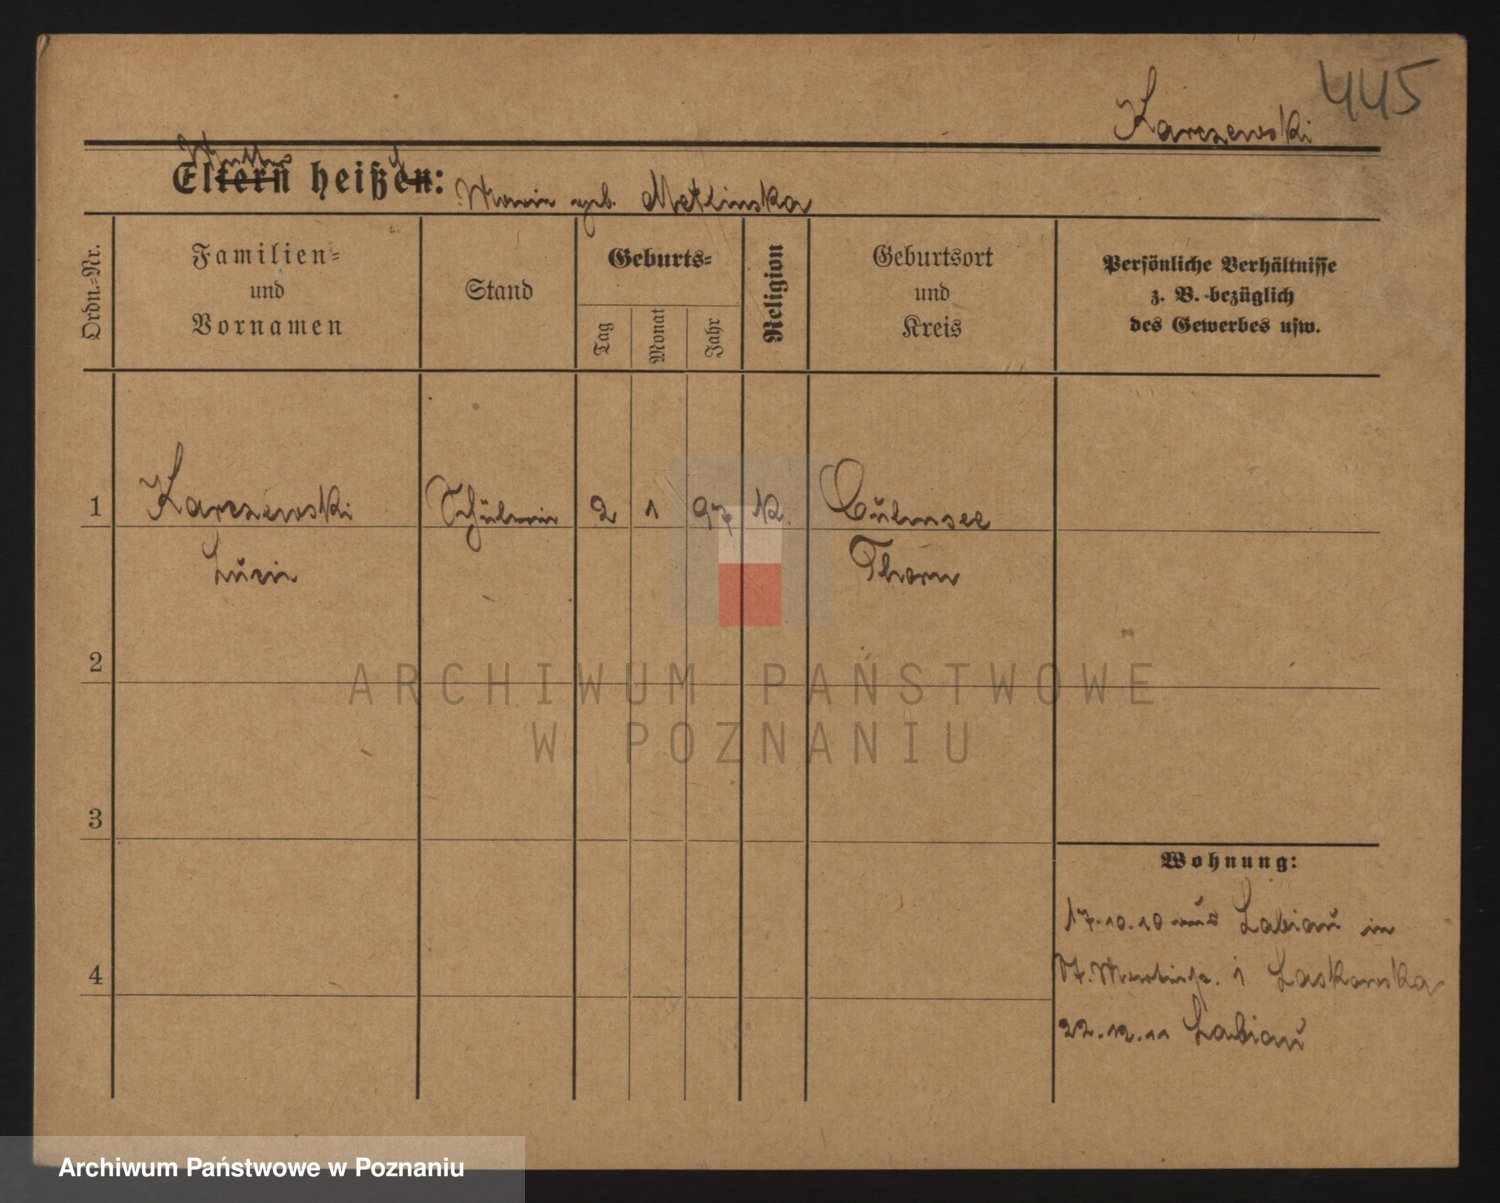 445
Karczewski
Mutter
Eltern heißen:
Marie geb. Metlinska
Ordn.-Nr.
Familien-
und
Vornamen
Stand
Geburts-
Tag
Monat
Jahr
Religion
Geburtsort
und
Kreis
Persönliche Verhältnisse
z. B. bezüglich
des Gewerbes usw.
1 Karczewski Schülerin 2 1 97 K. Culmsee
Luzie Thorn
2
3
4
Wohnung:
17.10.10 aus Labiau in
St. Martinstr. 1 Laskowska
22.12.11 Labiau
ARCHIWUM PAŃSTWOWE
W POZNANIU
Archiwum Państwowe w Poznaniu